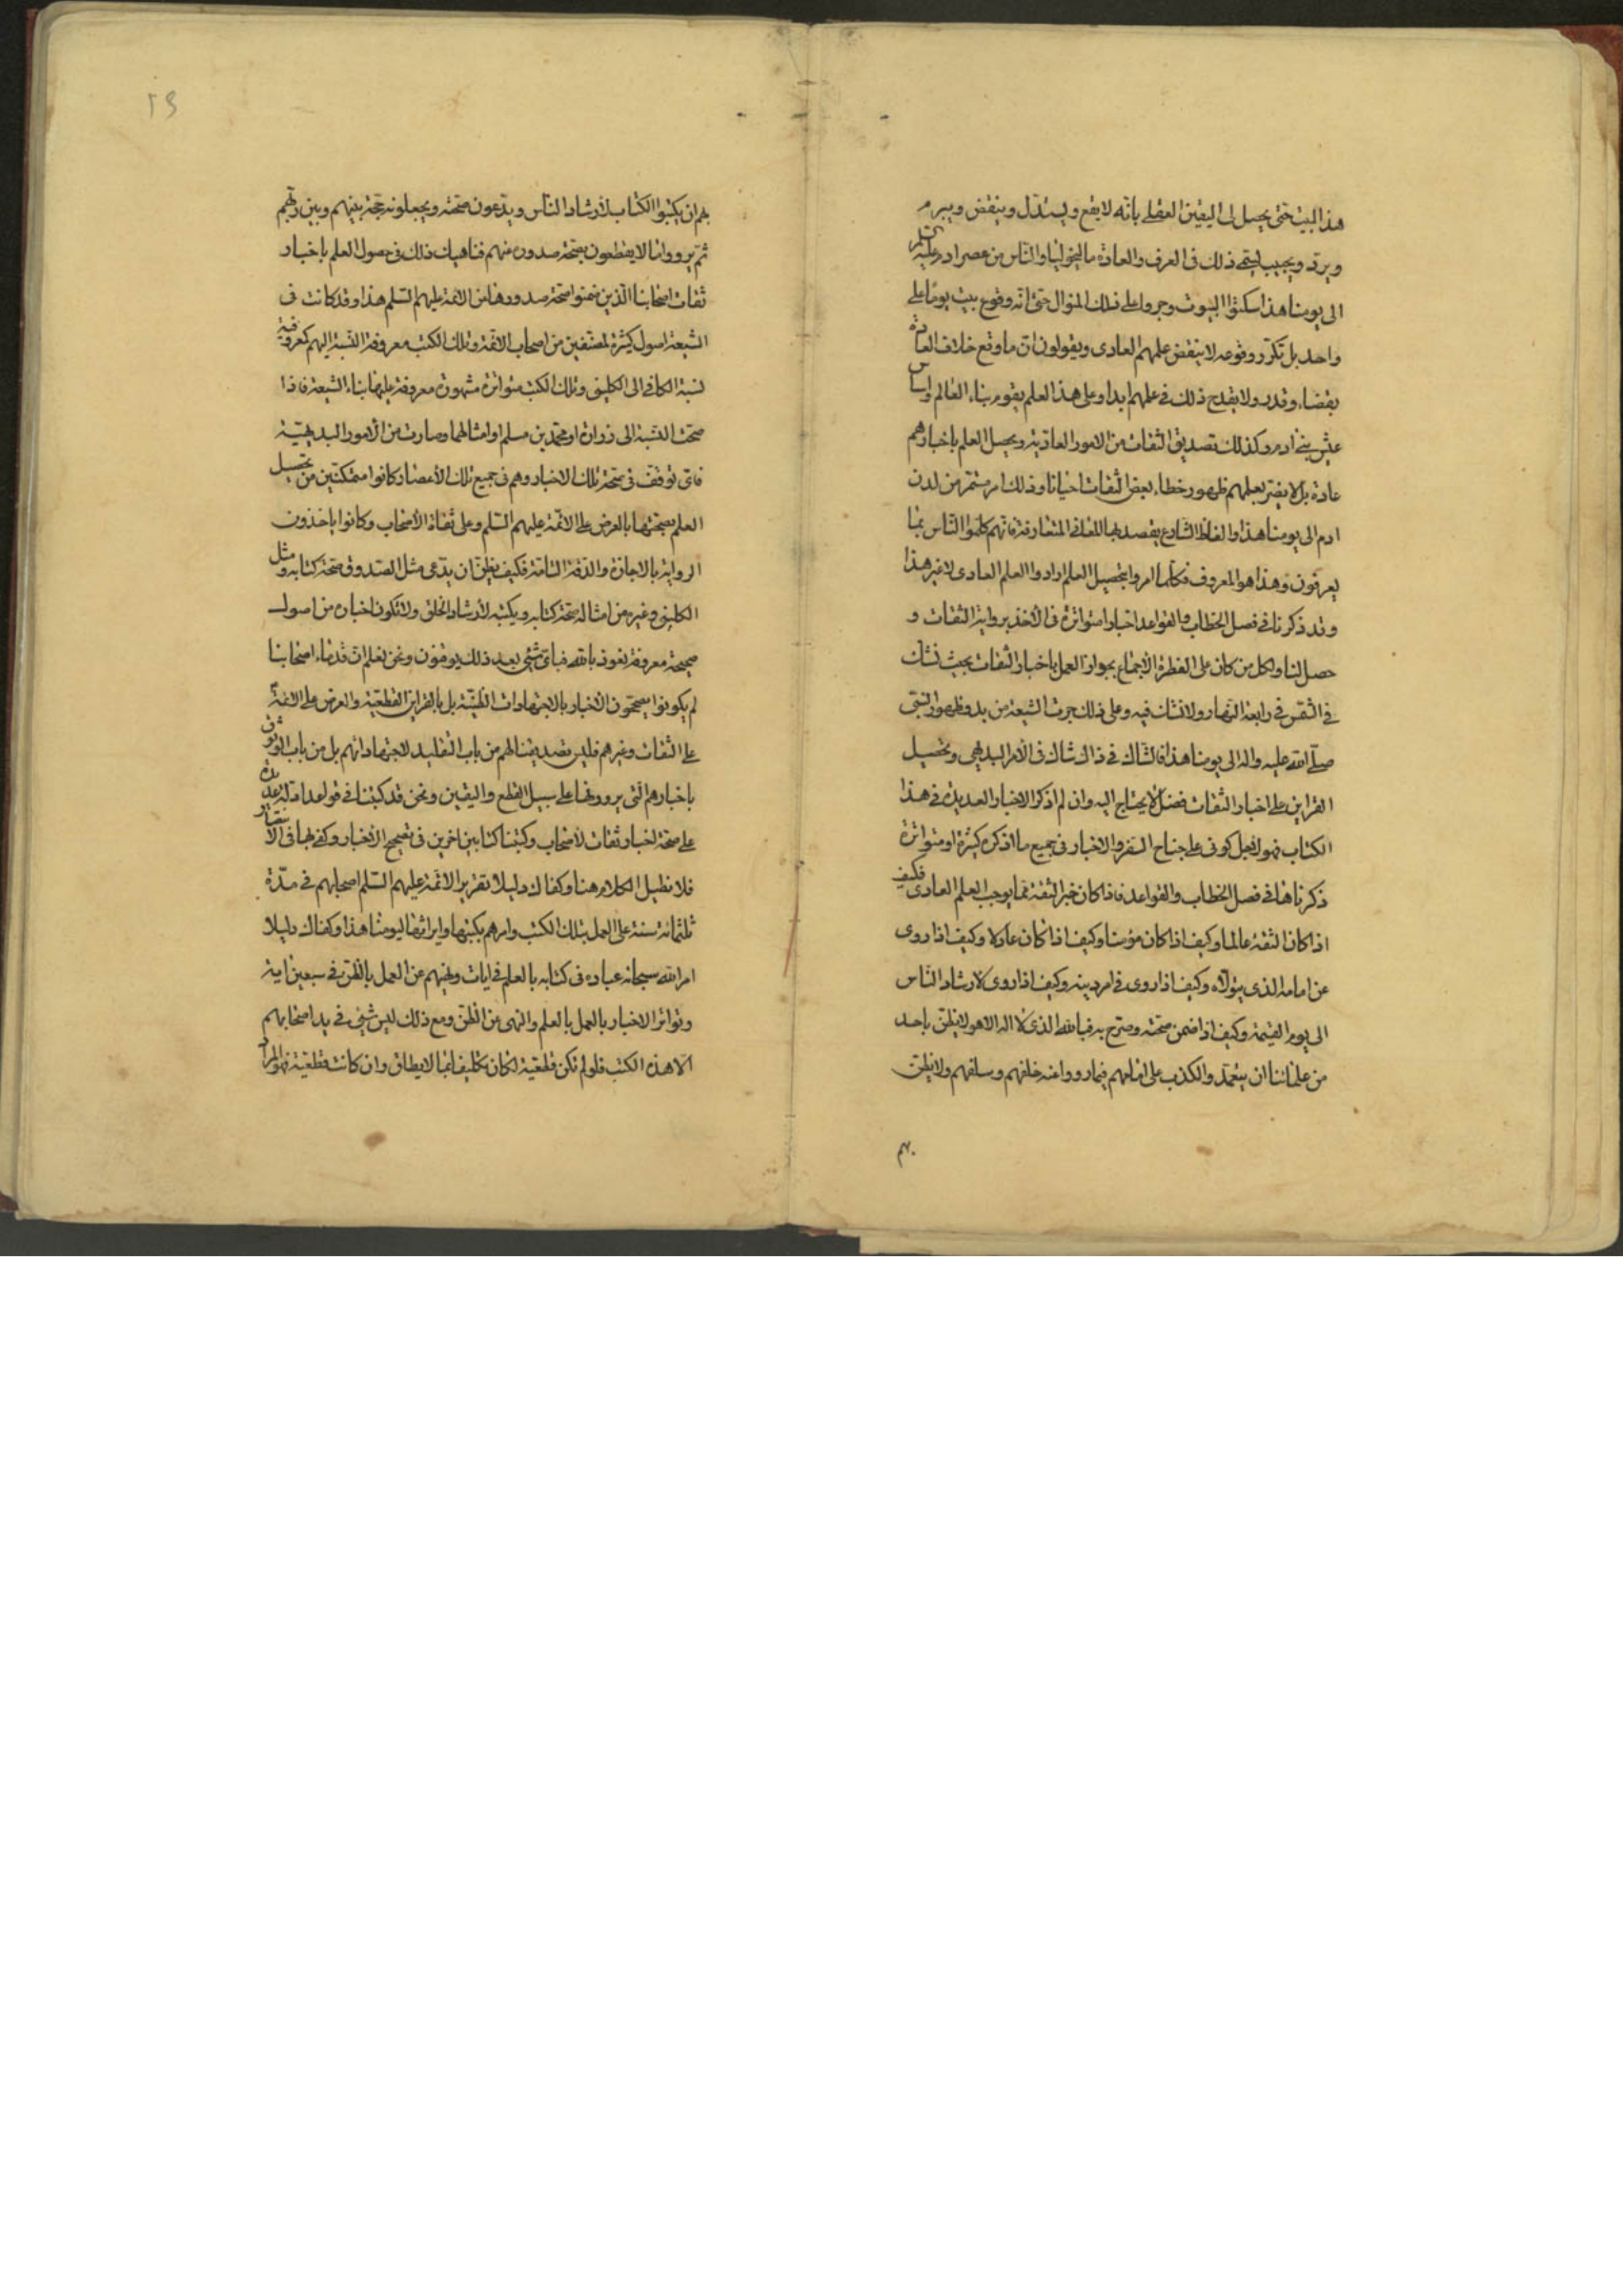 هذا البيت حتى يحصل لى اليقين العقلى بانه لا يقع ويستدل وينقض ويبرم
ويرد ويجيب ليسمى ذلك فى العرف والعادة ماليخوليا والناس من عصر ادم عليه السلم
الى يومنا هذا سكنوا البيوت وجروا على ذلك المنوال حتى انه وقوع بيت يوما على
واحد بل تكرر وقوعه لا ينقض علمهم العادى ويقولون ان ما وقع خلاف العادة
بقضاء وقدر ولا يقدح ذلك فى علمهم ابدا وعلى هذا العلم يقوم بناء العالم واساس
عيش بنى ادم وكذلك تصديق الثقات من الامور العادية ويحصل العلم باخبارهم
عادة بل لا يضر بعلمهم ظهور خطاء بعض الثقات احيانا وذلك امر مستمر من لدن
ادم الى يومنا هذا والفاظ الشارع يقصد بها المعانى المتعارفة فانهم كلموا الناس بما
يعرفون وهذا هو المعروف فكلما امروا بتحصيل العلم ارادوا العلم العادى لا غير هذا
وقد ذكرنا فى فصل الخطاب والقواعد اخبارا متواترة فى الاخذ برواية الثقات و
حصل لنا ولكل من كان على الفطرة الاجماع بجواز العمل باخبار الثقات بحيث نشك
فى الشمس فى رابعة النهار ولا نشك فيه وعلى ذلك جرت الشيعة من بدو ظهور النبى
صلى الله عليه واله الى يومنا هذا فالشاك فى ذاك شاك فى الامر البديهى وتحصيل
القراين على اخبار الثقات فضل لا يحتاج اليه وان لم اذكر الاخبار العديدة فى هذا
الكتاب فهو لانى على جناح السفر والاخبار فى جميع ما اذكره كثيرة او متواترة
ذكرناها فى فصل الخطاب والقواعد فاذا كان خبر الثقة مما يوجب العلم العادى فكيف
اذا كان الثقة عالما وكيف اذا كان مؤمنا وكيف اذا كان عادلا وكيف اذا روى
عن امامه الذى يتولاه وكيف اذا روى فى امر دينه وكيف اذا روى لارشاد الناس
الى يوم القيمة وكيف اذا ضمن صحته وصرح به فبالله الذى لا اله الا هو لا يظن باحد
من علمائنا ان يتعمدوا الكذب على امامهم فيما رووا عنه خلفهم وسلفهم ولا يظن
بهم
٢٩
بهم ان يكتبوا الكتاب لارشاد الناس ويدعون صحته ويجعلونه حجة بينهم وبين ربهم
ثم يرووا ما لا يقطعون بصحة صدوره منهم فناهيك ذلك فى حصول العلم باخبار
ثقات اصحابنا الذين ضمنوا صحة صدورها من الائمة عليهم السلم هذا وقد كانت فى
الشيعة اصول كثيرة لمصنفين من اصحاب الائمة وتلك الكتب معروفة النسبة اليهم كمعروفية
نسبة الكافى الى الكلينى وتلك الكتب متواترة مشهورة معروفة عليها بناء الشيعة فاذا
صحت النسبة الى زرارة او محمد بن مسلم او امثالهما وصارت من الامور البديهية
فاى توقف فى صحة تلك الاخبار وهم فى جميع تلك الاعصار كانوا متمكنين من تحصيل
العلم بصحتها بالعرض على الائمة عليهم السلم وعلى ثقاة الاصحاب وكانوا ياخذون
الرواية بالاجازة والدقة التامة فكيف يظن ان يدعى مثل الصدوق صحة كتابه ومثل
الكلينى وغيره من امثاله صحة كتابه ويكتبه لارشاد الخلق ولا تكون اخباره من اصول
صحيحة معروفة نعوذ بالله فباى شئ بعد ذلك يوقنون ونحن نعلم ان قدماء اصحابنا
لم يكونوا يصححون الاخبار بالاجتهادات الظنية بل بالقراين القطعية والعرض على الائمة
على الثقات وغيرهم فليس تصديقنا لهم من باب التقليد لاجتهاداتهم بل من باب الوثوق
باخبارهم التى يروونها على سبيل القطع واليقين ونحن قد كتبنا فى قواعد ادلة عديدة
على صحة اخبار ثقات الاصحاب وكتبنا كتابين اخرين فى تصحيح الاخبار وكفى بها فى الاستبصار
فلا نطيل الكلام هنا وكفاك دليلا تقرير الائمة عليهم السلم اصحابهم فى مدة
ثلثمائة سنة على العمل بتلك الكتب وامرهم بكتبها وايراثها ليومنا هذا وكفاك دليلا
امر الله سبحانه عباده فى كتابه بالعلم فى ايات ونهيهم عن العمل بالظن فى سبعين اية
وتواتر الاخبار بالعمل بالعلم والنهى عن الظن ومع ذلك ليس شئ فى يد اصحابهم
الا هذه الكتب فلو لم تكن قطعية لكان تكليفا بما لا يطاق وان كانت قطعية فهو المراد